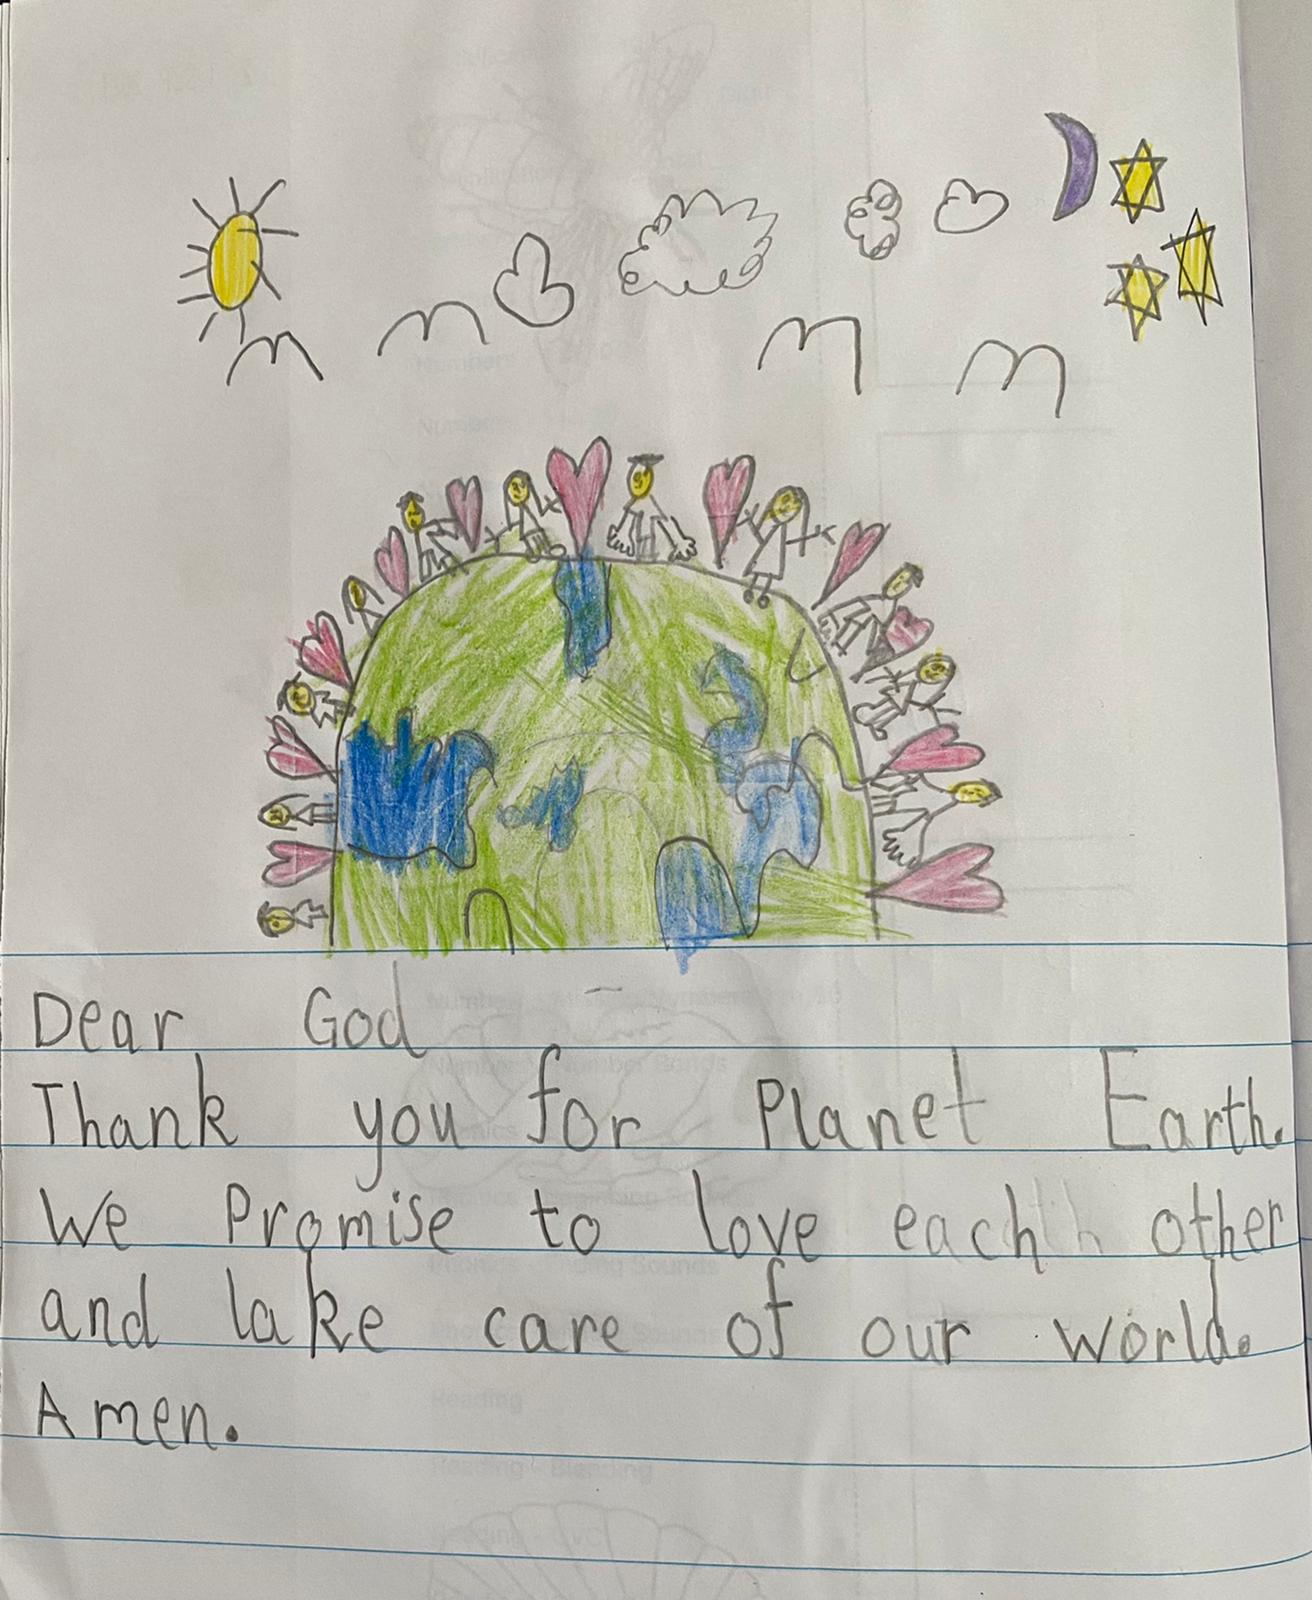 Dear God
Thank you for Planet Earth.
We Promise to love each other
and take care of our world.
Amen.